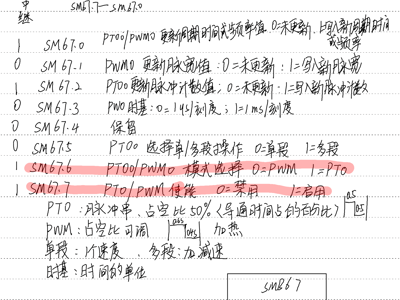 中 SM67.7—SM67.0
继
1 SM67.0 PTO0/PWM0 更新周期时间或频率值 0=未更新 1=写入新周期时间或频率
0 SM67.1 PWM0 更新脉宽值: 0=未更新: 1=写入新脉宽
1 SM67.2 PTO0 更新脉冲计数值: 0=未更新: 1=写入新脉冲计数
0 SM67.3 PWO时基: 0=1μs/刻度; 1=1ms/刻度
0 SM67.4 保留
0 SM67.5 PTO0 选择单/多段操作 0=单段 1=多段
1 SM67.6 PTO0/PWM0 模式选择 0=PWM 1=PTO
1 SM67.7 PTO/PWM使能 0=禁用 1=启用
PTO: 脉冲串、占空比50% (导通时间占的百分比) 0.5
PWM: 占空比可调 加热
单段: 1个速度、多段: 加减速
时基: 时间的单位
SMB67